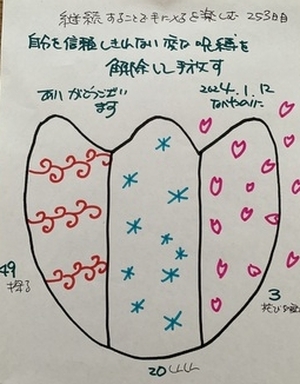 継続することを手にとるを楽しむ 253日目
自分を信頼しきれない変な呪縛を
解除いし手放す
ありがとうござい
ます
2024.1.12
49
探る
3
20